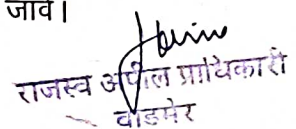 जावे।
राजस्व अपील प्राधिकारी
बाडमेर